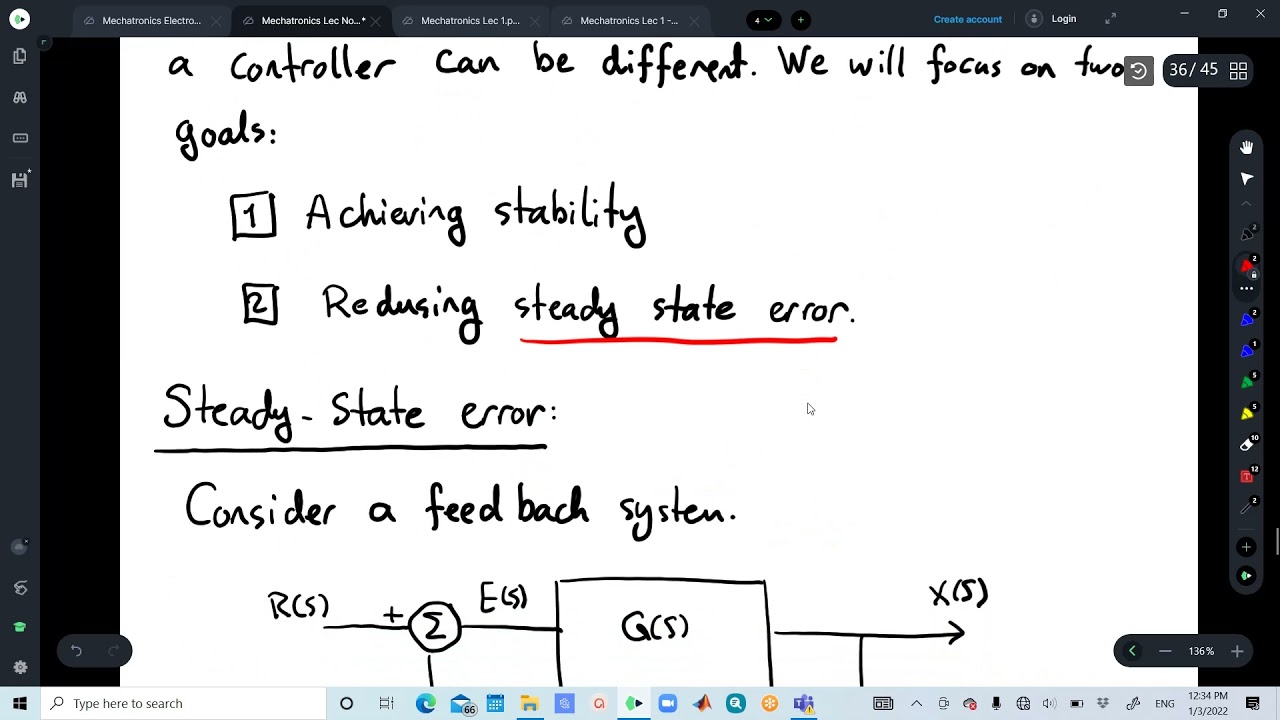 Mechatronics Electro...
Mechatronics Lec No...*
Mechatronics Lec 1.p...
Mechatronics Lec 1 -...
4
Create account
Login
a controller can be different. We will focus on two
36/45
goals:
1 Achieving stability
2 Redusing steady state error.
Steady-State error:
Consider a feedback system.
R(s) + Σ E(s) G(s) X(s)
136%
2
2
2
1
5
5
10
12
2
Type here to search
66
ENG
12:34 PM
1/3/2022